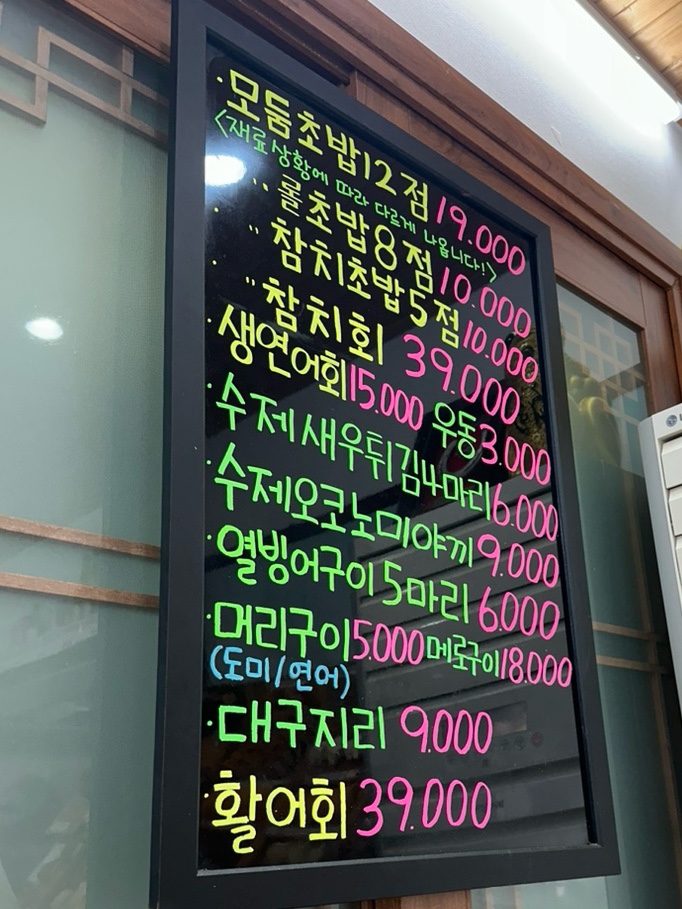 ·모둠초밥12점 19.000
<재료상황에 따라 다르게 나옵니다!>
·" 롤초밥8점 10.000
·" 참치초밥5점 10.000
·" 참치회 39.000
·생연어회15.000 우동3.000
·수제새우튀김4마리6.000
·수제오코노미야끼9.000
·열빙어구이5마리 6.000
·머리구이5.000메로구이18.000
(도미/연어)
·대구지리 9.000
·활어회39.000